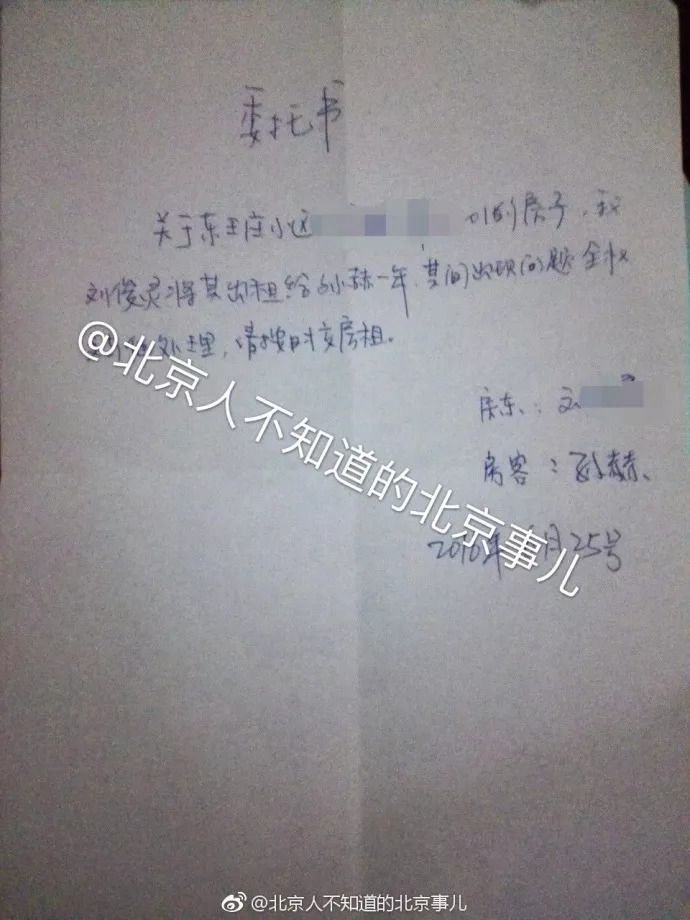 委托书
关于东王庄小区 的房子,我
刘俊灵将其出租给孙赫一年,其间出现问题全权
处理,请按时交房租。
房东:刘
房客:孙赫、
2016年 月25号
@北京人不知道的北京事儿
@北京人不知道的北京事儿